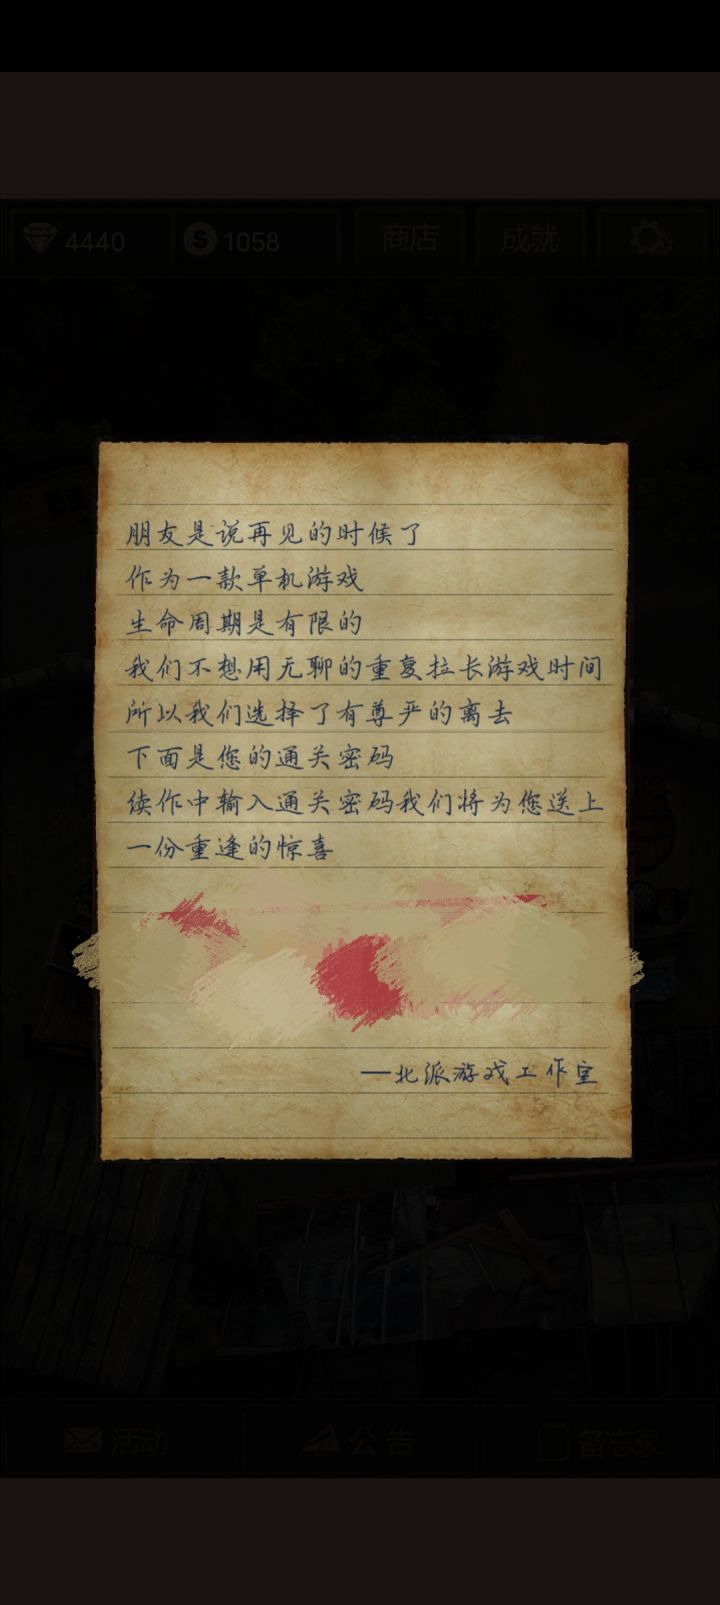 4440
1058
商店
成就
朋友是说再见的时候了
作为一款单机游戏
生命周期是有限的
我们不想用无聊的重复拉长游戏时间
所以我们选择了有尊严的离去
下面是您的通关密码
续作中输入通关密码我们将为您送上
一份重逢的惊喜
—北派游戏工作室
活动
公告
备忘录